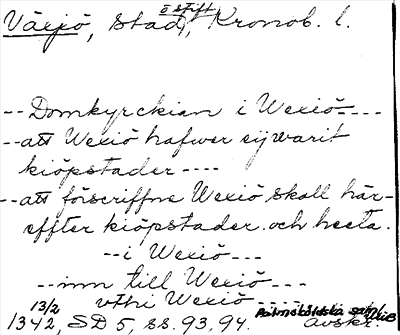 Växjö, stad, ö stift, Kronob. l.
-- Domkyrckian i Wexiö ----
-- att Wexiö hafwer eij warit
kiöpstader ----
-- att förscriffne Wexiö skall här-
effter kiöpstader och heeta.
-- i Wexiö ---
-- inn till Wexiö ---
vthi Wexiö ---
1342, 13/2 SD 5, ss. 93, 94. avskr.